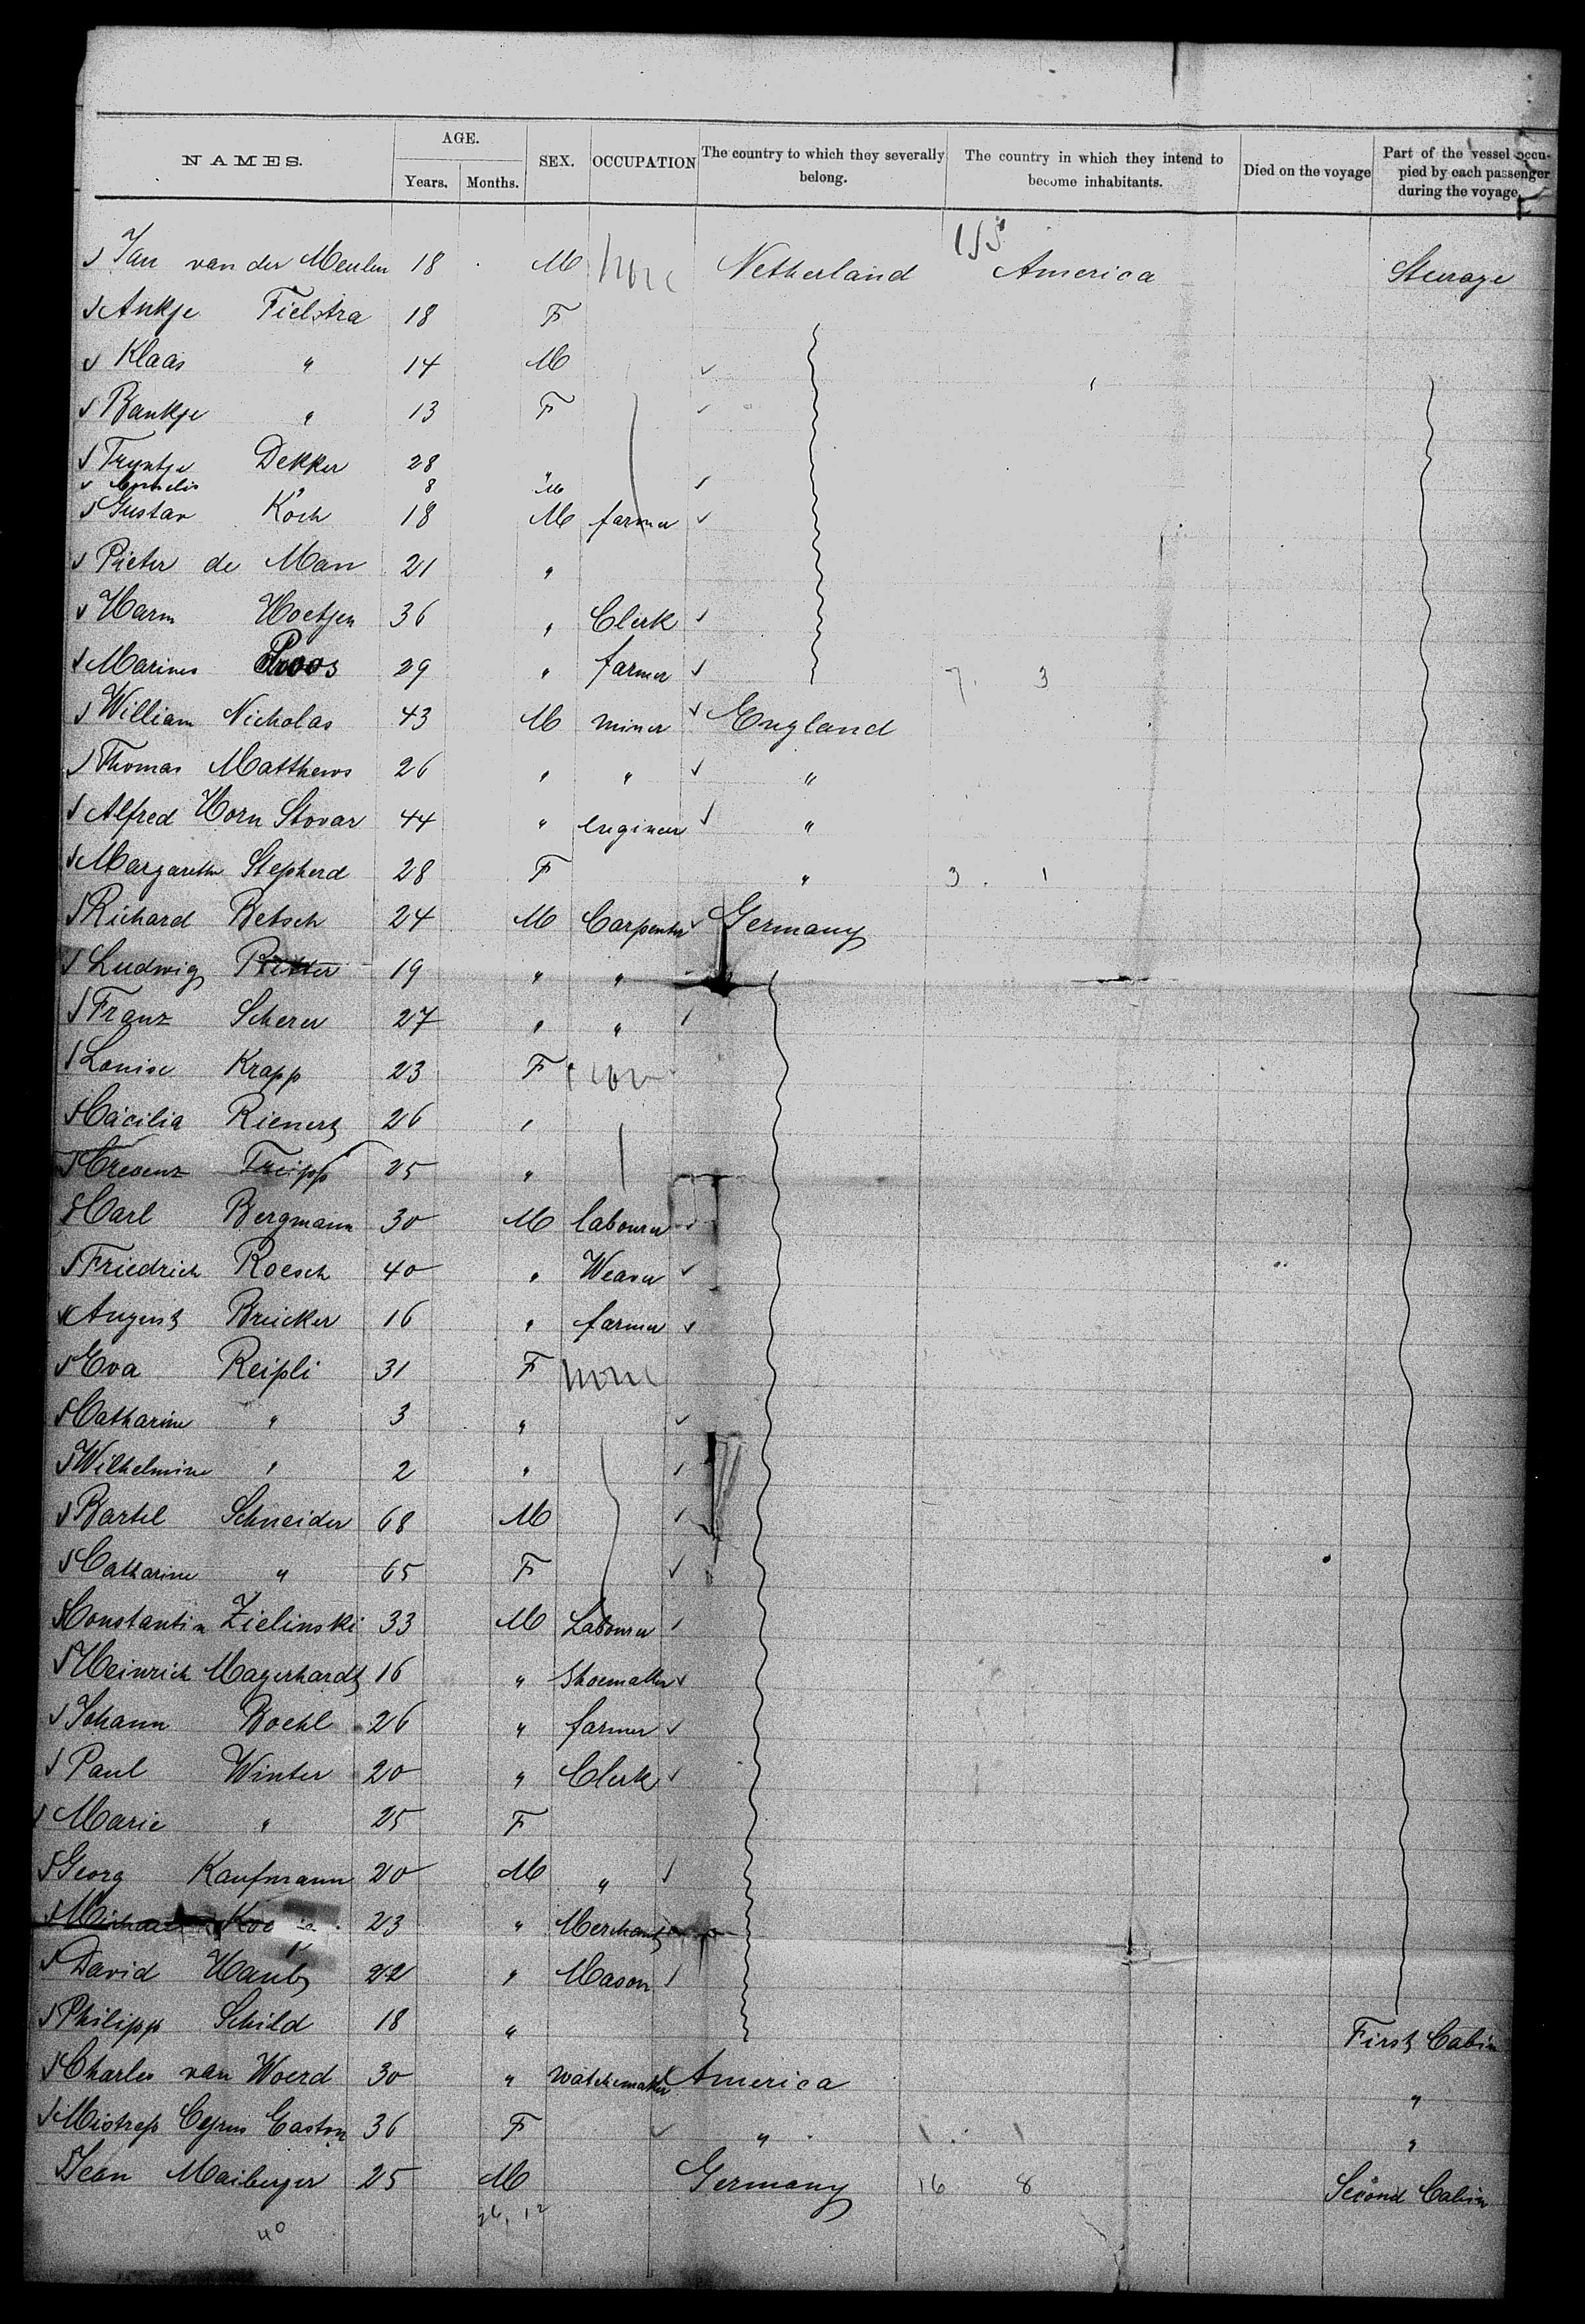 NAMES. AGE. Years. Months. SEX. OCCUPATION The country to which they severally belong. The country in which they intend to become inhabitants. Died on the voyage Part of the vessel occupied by each passenger during the voyage.
Jan van der Meulen 18 M none Netherland America Steerage
Ankje Tielstra 18 F
Klaas " 14 M
Baukje " 13 F
Tryntje Dekker 28 "
Cornelis " 8 M
Gustav Koch 18 M farmer
Pieter de Man 21 "
Harm Hoetjen 36 " Clerk
Marinus Roos 29 " farmer 7. 3
William Nicholas 43 M miner England
Thomas Matthews 26 " " "
Alfred Horn Stovar 44 " engineer "
Margarethe Stepherd 28 F " 3. 1
Richard Betsch 24 M Carpenter Germany
Ludwig Ritter 19 " "
Franz Scherer 27 " "
Louise Krapp 23 F non
Cäcilia Rienertz 26 "
Crevenz Treipp 25 "
Carl Bergmann 30 M labourer
Friedrich Roesch 40 " Weaver
August Brücker 16 " farmer
Eva Reipli 31 F none
Catharine " 3 "
Wilhelmine " 2 "
Bartel Schneider 68 M
Catharine " 65 F
Constantin Zielinski 33 M Labourer
Heinrich Magerhardt 16 " Shoemaker
Johann Boehl 26 " farmer
Paul Winter 20 " Clerk
Marie " 25 F
Georg Kaufmann 20 M "
23 " Merchant
David Haub 22 " Mason
Philipp Schild 18 " First Cabin
Charles van Woerd 30 " watchemaker America "
Mistress Cyrus Easton 36 F " 1. 1 "
Jean Maiberger 25 M Germany 16 8 Second Cabin
40 26. 12